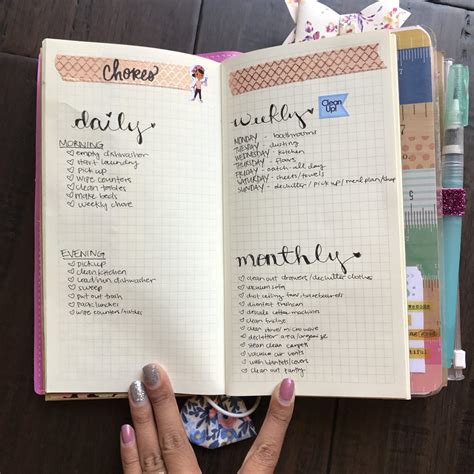 Chores
daily
MORNING
empty dishwasher
start laundry
pick up
wipe counters
clean tables
make beds
weekly chore
EVENING
pickup
clean kitchen
load/run dishwasher
sweep
put out trash
pack lunches
wipe counters/tables
weekly
Clean Up!
MONDAY - bathrooms
TUESDAY - dusting
WEDNESDAY - kitchen
THURSDAY - floors
FRIDAY - catch-all day
SATURDAY - sheets/towels
SUNDAY - declutter / pick up / meal plan/shop
monthly
clean out drawers/declutter clothes
vacuum sofa
dust ceiling fans/baseboards
disinfect trashcan
descale coffee machines
clean fridge
clean stove/microwave
declutter area/organize
steam clean carpets
vacuum air vents
wash blankets/covers
clean out pantry